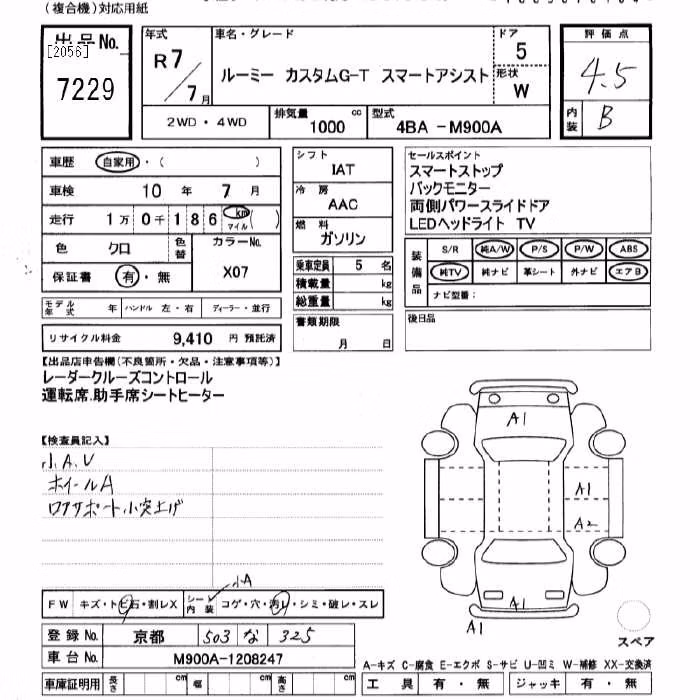 (複合機)対応用紙
出品No.
[2056]
7229
年式
R7/7月
車名・グレード
ルーミー カスタムG-T スマートアシスト
ドア
5
形状
W
評価点
4.5
内装
B
2WD・4WD
排気量
1000 cc
型式
4BA -M900A
車歴 自家用・( )
車検 10年 7月
走行 1万0千186 km マイル( )
色 クロ 色替 カラーNo. X07
保証書 有・無
モデル年式 年 ハンドル 左・右 ディーラー・並行
リサイクル料金 9,410 円 預託済
シフト
IAT
冷房
AAC
燃料
ガソリン
乗車定員 5 名
積載量 kg
総重量 kg
書類期限
月 日
セールスポイント
スマートストップ
バックモニター
両側パワースライドドア
LEDヘッドライト TV
装備品
S/R 純A/W P/S P/W ABS
純TV 純ナビ 革シート 外ナビ エアB
ナビ型番:
後日品
【出品店申告欄(不良箇所・欠品・注意事項等)】
レーダークルーズコントロール
運転席.助手席シートヒーター
【検査員記入】
小A.U
ホイールA
ロアサポート小突上げ
A1
A1
A2
A1
A1
スペア
小A
FW キズ・トビ石・割レX シート内装 コゲ・穴・汚レ・シミ・破レ・スレ
登録No. 京都 503 な 325
車台No. M900A-1208247
車庫証明用 長さ cm 幅 cm 高さ cm
A-キズ C-腐食 E-エクボ S-サビ U-凹ミ W-補修 XX-交換済
工具 有・無 ジャッキ 有・無